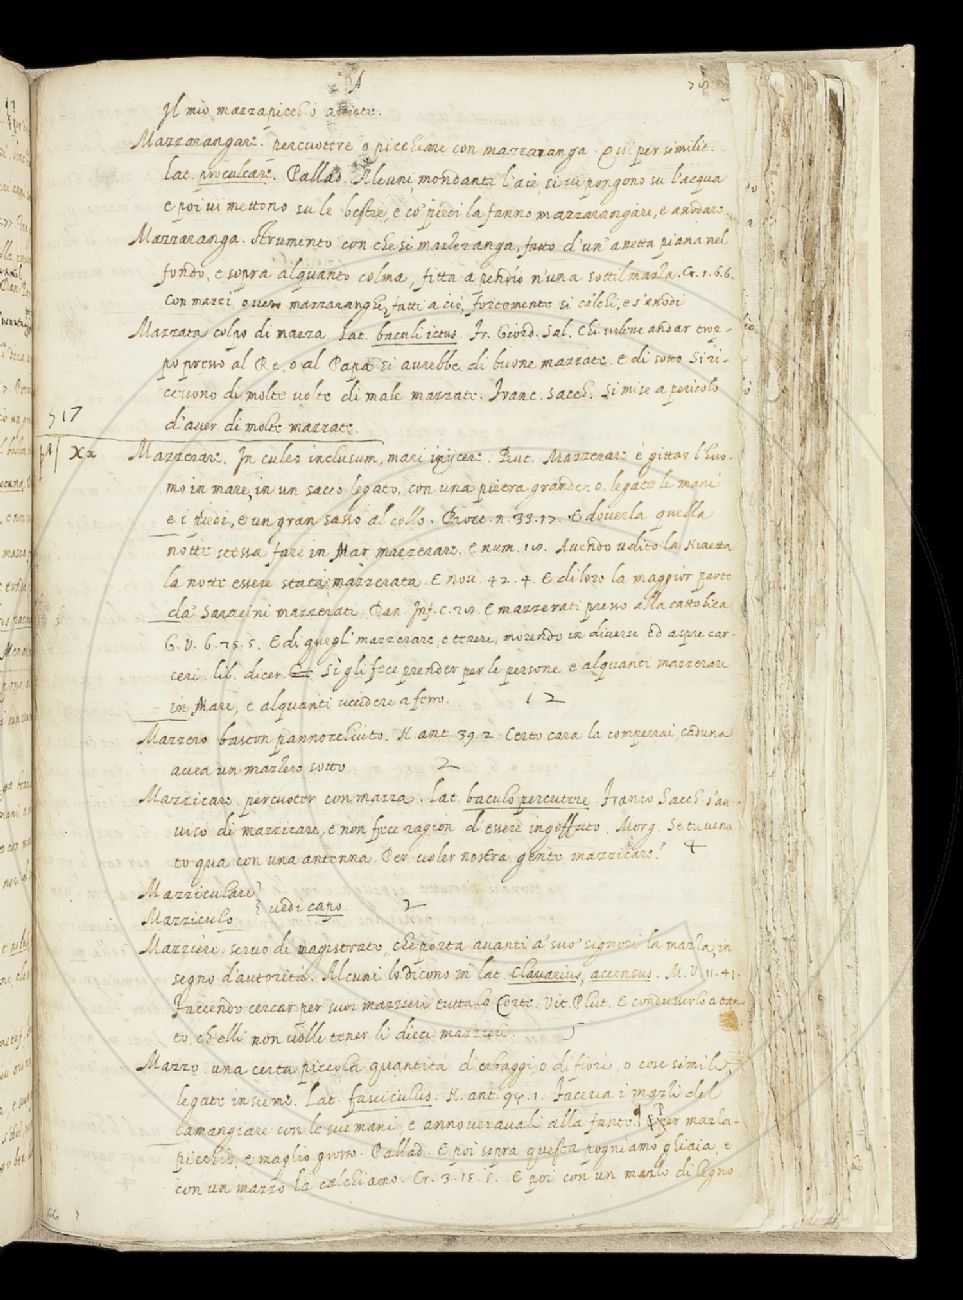 A
Il mio mazzapicchio
Mazzarangare. percuotere o picchiare con mazzaranga. Qui per similit.
Lat. proculcare. Pallad. Alcuni, mondante l'aie, si vi pongono su l'acqua
e poi vi mettono su le bestie, e co' piedi la fanno mazzarangare, e assodare
Mazzaranga. Strumento con che si mazzeranga, fatto d'un' assetta piana nel
fondo, e sopra alquanto colma, fitta a pendio n'una sottil mazza. Cr. 1. 6. 6.
Con mazzi, overo mazzaranghe, fatti a ciò, fortemente si calchi, e s'assodi
Mazzata colpo di mazza Lat. baculi ictus. Fr. Giord. Sal. Chi volesse andar trop-
po presso al Re, o al Papa si avrebbe di buone mazzate. e di sotto Si ri-
cevono di molte volte di male mazzate. Franc. Sacch. Si mise a pericolo
d'aver di molte mazzate.
717
M xx Mazzerare. In culeo inclusum, mari injcere. But. Mazzerare è gittar l'huo-
mo in mare, in un sacco legato, con una pietra grande. o. legate le mani
e i piedi, e un gran sasso al collo. Bocc. n. 33. 17. E doverla quella
notte stessa fare in Mar mazzerare. e num. 18. Avendo udito la Ninetta
la notte essere stata mazzerata. E nov. 42. 4. E di loro la maggior parte
da' Saracini mazzerati. Dan. Inf. c. 28. E mazzerati presso alla cattolica
G. V. 6. 75. 5. E di quegli mazzerare, e tenere, morendo in diverse ed aspre car-
ceri. lib. dicer. Sì gli fece prender per le persone e alquanti mazzerare
in Mare, e alquanti uccidere a ferro. 12
Mazzero baston pannocchiuto. N. ant. 39. 2 Certo cara la comperai, caduna
avea un mazzero sotto 2
Mazzicare. percuoter con mazza. Lat. baculo percutere. Franco Sacch. s'av-
visò di mazzicare, e non fece ragion d'essere ingoffato. Morg. Se tu venu
to qua con una antenna, Per voler nostra gente mazzicare? 4
Mazziculare
Mazziculo } vedi capo. 2
Mazziere. servo di magistrato, che porta avanti a' suo' signori la mazza, in
segno d'autorità. Alcuni lo dicono in lat. Clavarius, accensus. M. V. 11. 41.
Faccendo cercar per suoi mazzieri tutta la Corte. Vit. Plut. E condusserlo a tan-
to, ch'elli non volle tener li dieci mazzieri. 5
Mazzo. una certa piccola quantità d'erbaggi, o di fiori, o cose simili,
legate insieme. Lat. fasciculus. N. ant. 95. 1. Faceva i mazzi del
lamangiare con le sue mani, e annoveravali alla fante. Per mazza-
picchio, e maglio grosso. Pallad. E poi sopra questa pogniamo ghiaia, e
con un mazzo la calchiamo. Cr. 3. 15. 1. E poi con un mazzo di legno